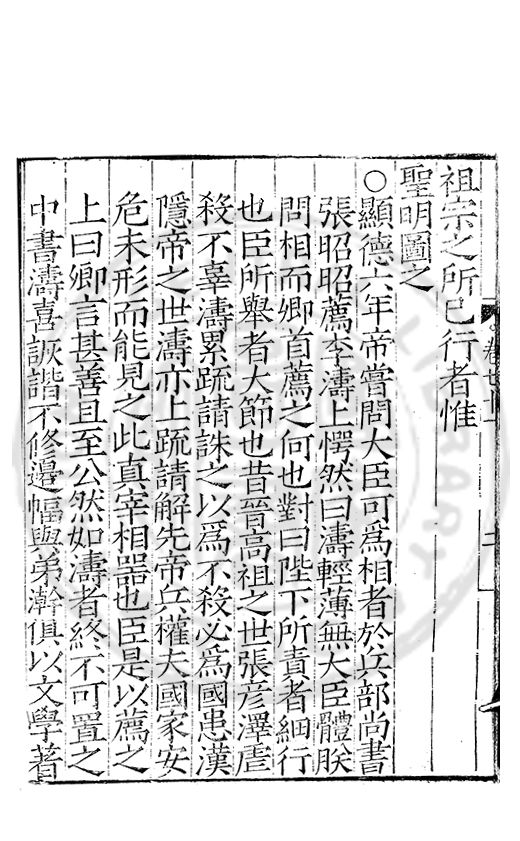 祖宗之所已行者惟
聖明圖之
○顯德六年帝嘗問大臣可爲相者於兵部尚書
張昭昭薦李濤上愕然曰濤輕薄無大臣體朕
問相而卿首薦之何也對曰陛下所責者細行
也臣所舉者大節也昔晉高祖之世張彥澤虐
殺不辜濤累疏請誅之以爲不殺必爲國患漢
隱帝之世濤亦上疏請解先帝兵權夫國家安
危未形而能見之此真宰相器也臣是以薦之
上曰卿言甚善且至公然如濤者終不可置之
中書濤喜詼諧不修邊幅與弟澣俱以文學著